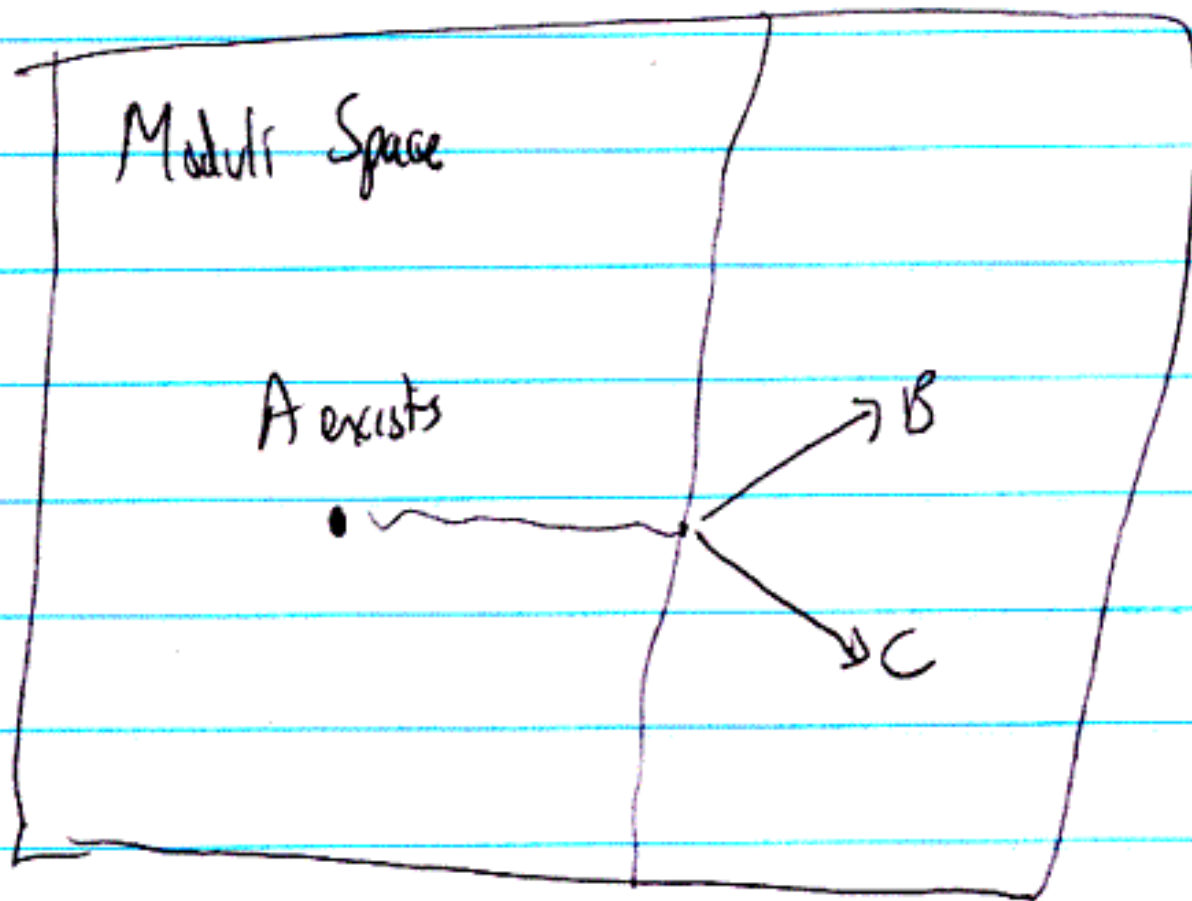 Moduli Space
A exists
B
C